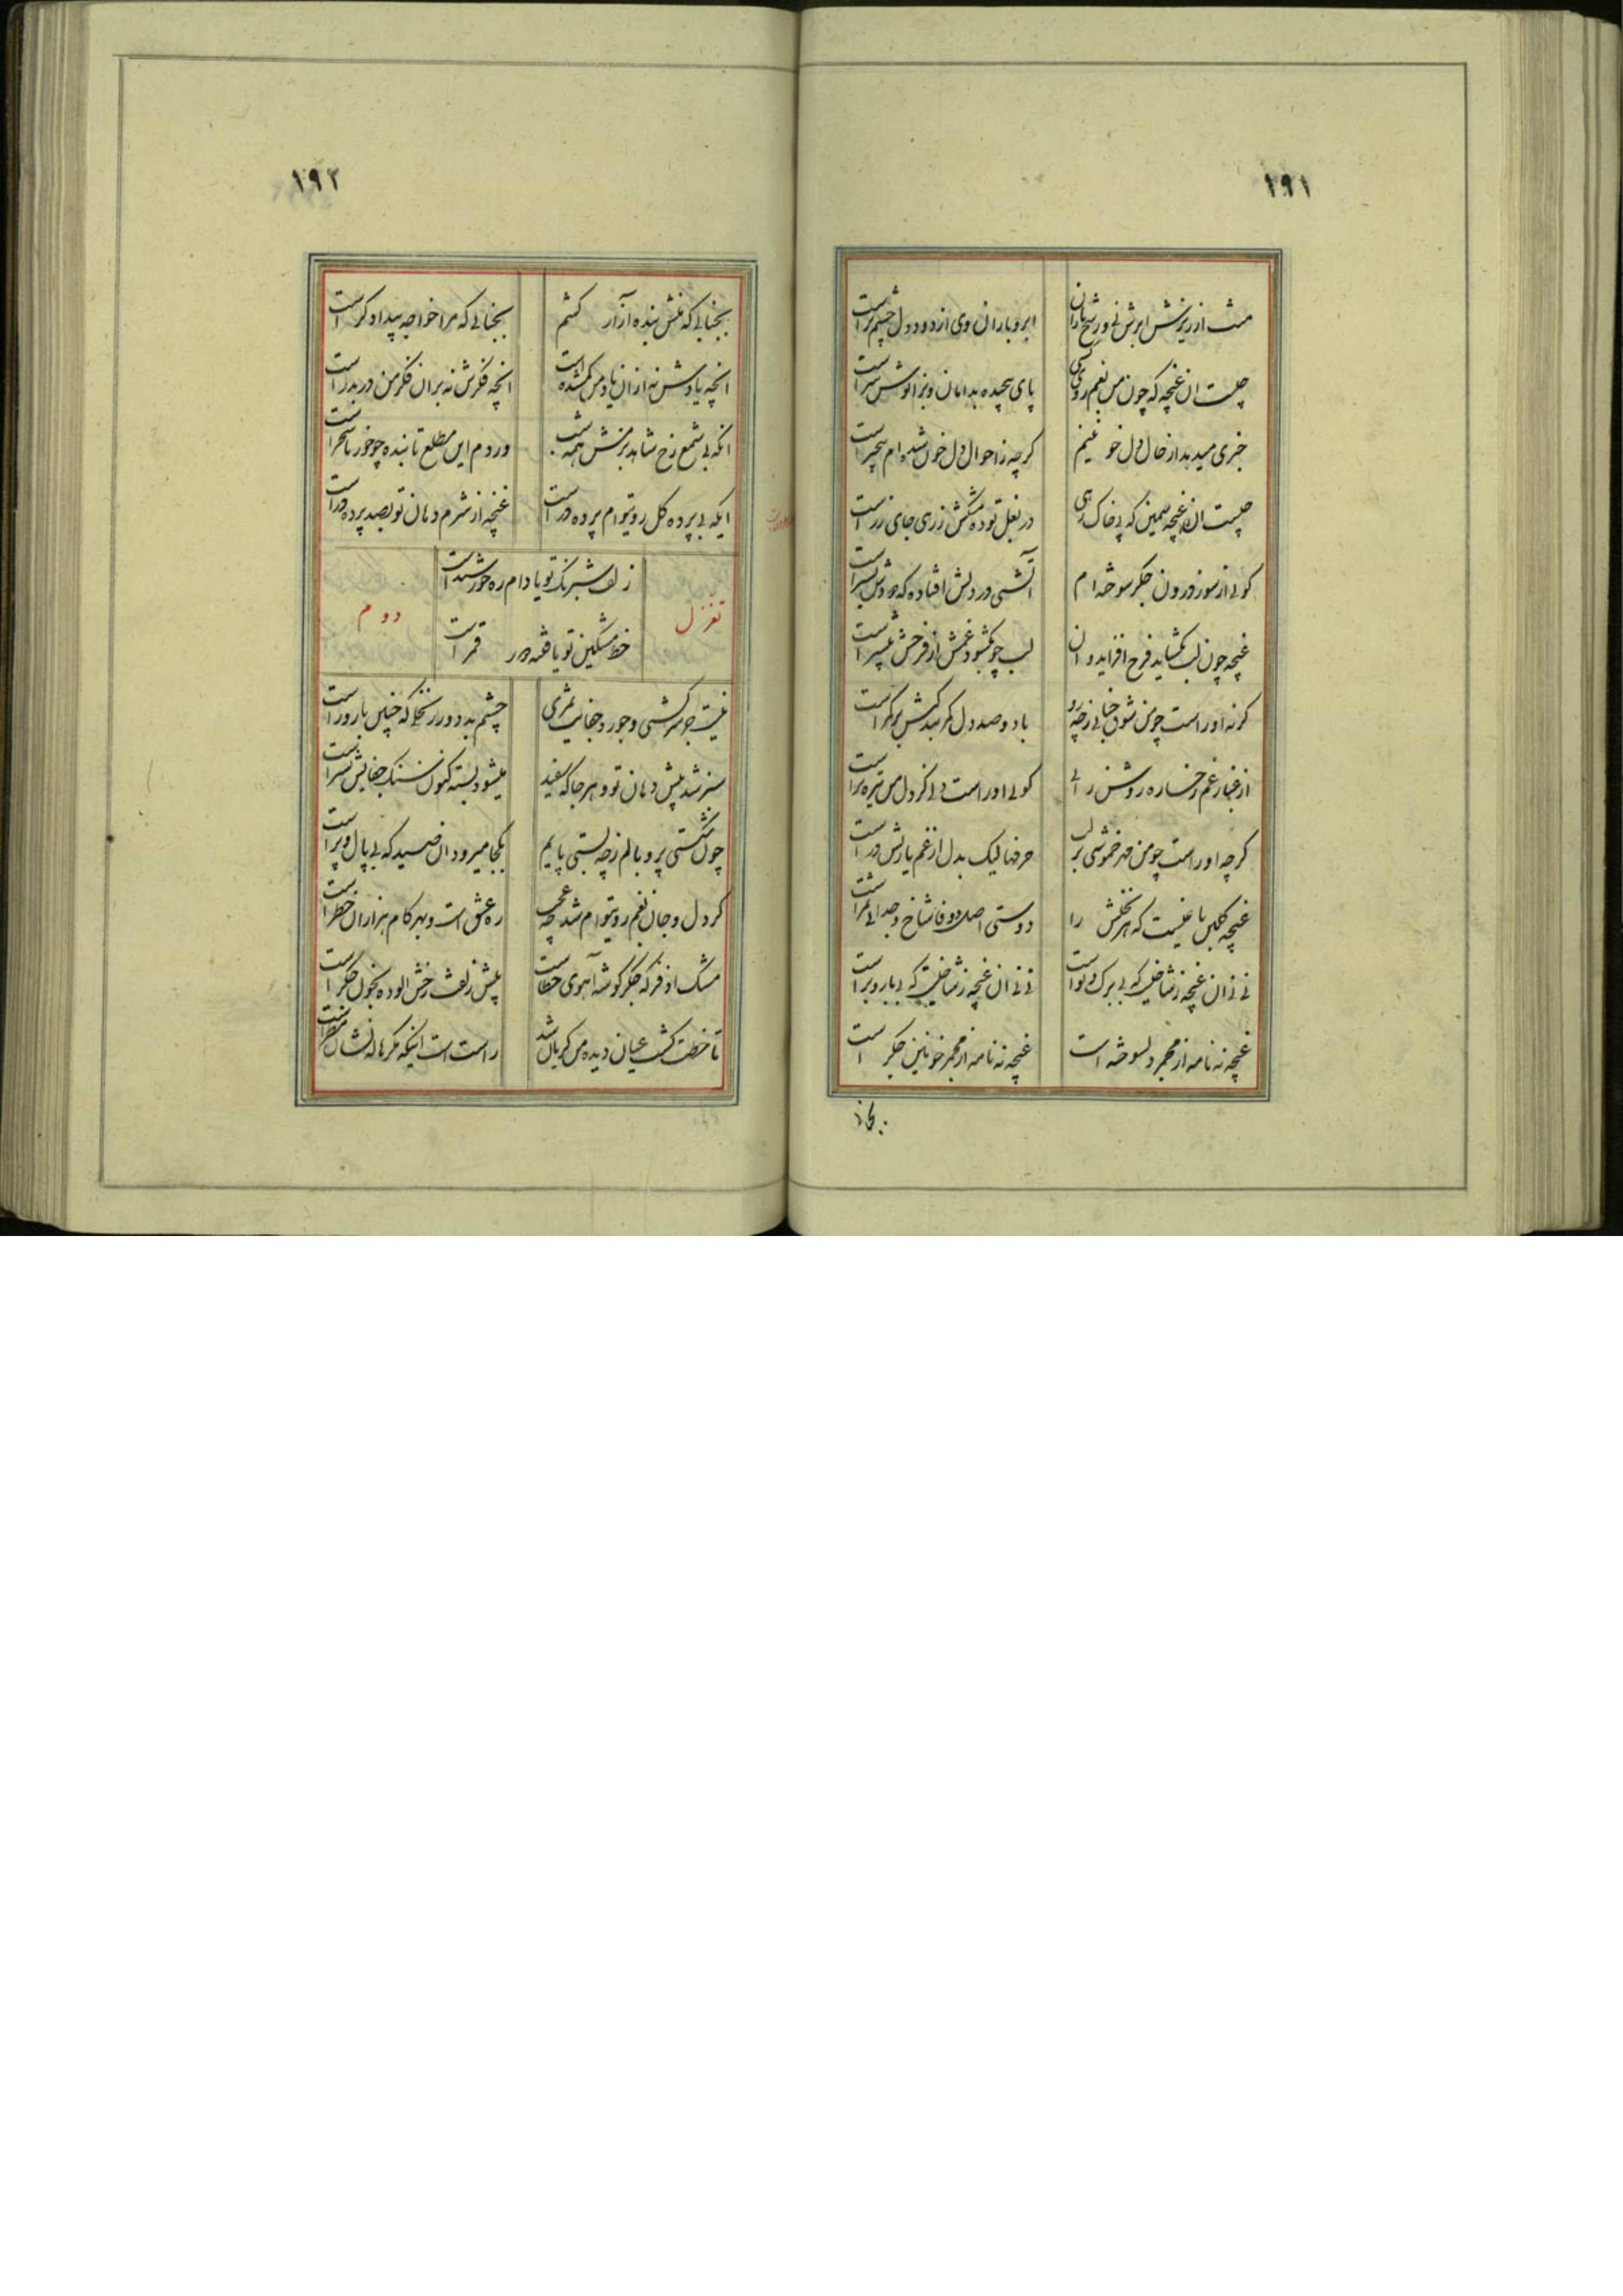 ۱۹۱
ابر و باران وی از دود دل چشم تر است
چیست ان غنچه که چون من بغم روی کسی پای پیچیده بدامان و بزانوش سر است
خبری میدهد از حال دل خو گرچه ز احوال دل خون شده ام بیخبر است
چیست ان غنچه سیمین که پی خاک رهی در بغل توده مشکش زر
کوئی از سوز درون جگر سوخته ام آتشی در دلش افتاده که
غنچه چون لب بگشاید فرح افزاید و ان لب چو بگشود غمش از فرحش بیشتر است
گر نه او راست چو من شوق ز چه رو باد و صد دل کمر بندگیش بر کمر است
از غبار غم رخساره روشن رائی کوئی او راست ولی کز دل من تیره تر است
گرچه او راست چو من مهر خموشی بر لب حرفها لیک بدل از غم یارش در است
غنچه گلبن باغیست که هر نخلش را دوستی اصل و وفا شاخ و جدائی ثمر است
نی نی ان غنچه ز شاخیست که بی برگ و نواست نی نی ان غنچه ز شاخیست که بی بار و بر است
غنچه نه نامه از مجمر دلسوخته است غنچه نه نامه از مجمر خونین جگر است
۱۹۲
بجنابی که منش بنده آزار کشم بجنابی که مرا خواجه بیدادگر است
انچه یادش نه از ان یاد من گمشده است انچه فکرش نه بران فکر من در بدر است
انکه بی شمع رخ شاهد بزمش همه شب وردم این مطلع تابنده چو خور تا سحر است
ایکه بی پرده گل روی توام پرده در است غنچه از شرم دهان تو بصد پرده در است
تغزل
زلف شبرنگ تو یا دام ره خورشید است
خط مشکین تو یا فتنه دور قمر است
دوم
نیست جز سرکشی و جور و جفایت ثمری چشم بد دور ز نخلی که چنین بارور است
سبز شد پیش دهان تو و هر جا که
چون شکستی پر و بالم ز چه بستی پایم بکجا میرود ان صید که بی بال و پر است
گر دل و جان بغم روی توام شد چه عجب ره عشق است و بهر گام هزاران خطر است
مشک اذفر که جگر گوشه آهوی خطاست پیش زلف رخش الوده بخون جگر است
تا خطت گشت عیان دیده من گریان شد راست است اینکه مگر هاله نشان مطر است